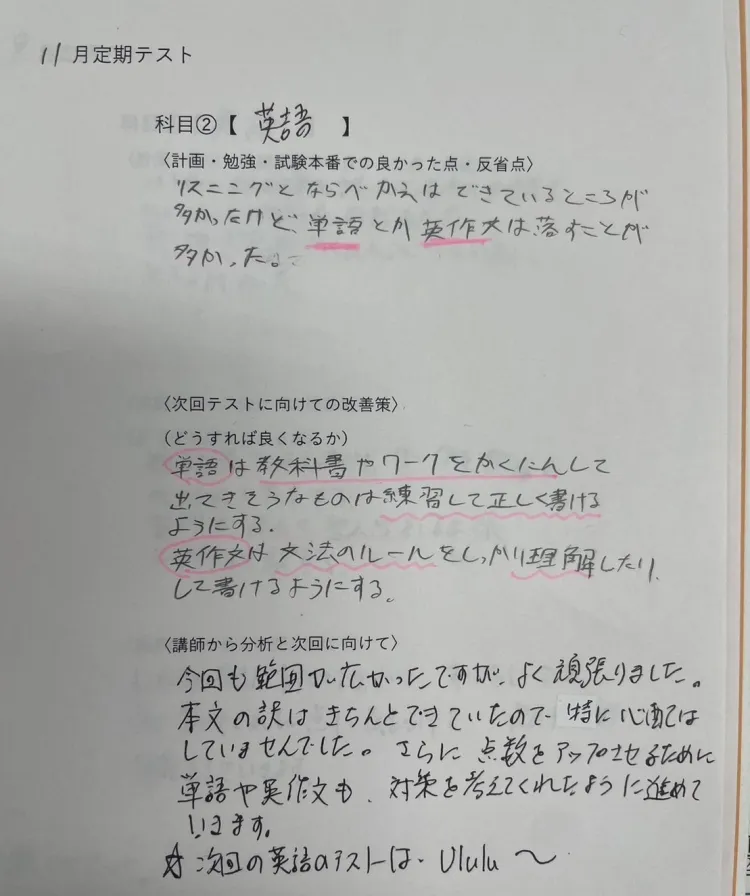 11月定期テスト
科目②【 英語 】
〈計画・勉強・試験本番での良かった点・反省点〉
リスニングとならべかえはできているところが
多かったけど、単語とか英作文は落すことが
多かった。
〈次回テストに向けての改善策〉
(どうすれば良くなるか)
単語は教科書やワークをかくにんして
出てきそうなものは練習して正しく書ける
ようにする.
英作文は文法のルールをしっかり理解したり、
して書けるようにする。
〈講師から分析と次回に向けて〉
今回も範囲が広かったですが、よく頑張りました。
本文の訳はきちんとできていたので特に心配は
していませんでした。さらに点数をアップさせるために
単語や英作文も、対策を考えてくれたように進めて
いきます。
☆次回の英語のテストは、Ululu 〜